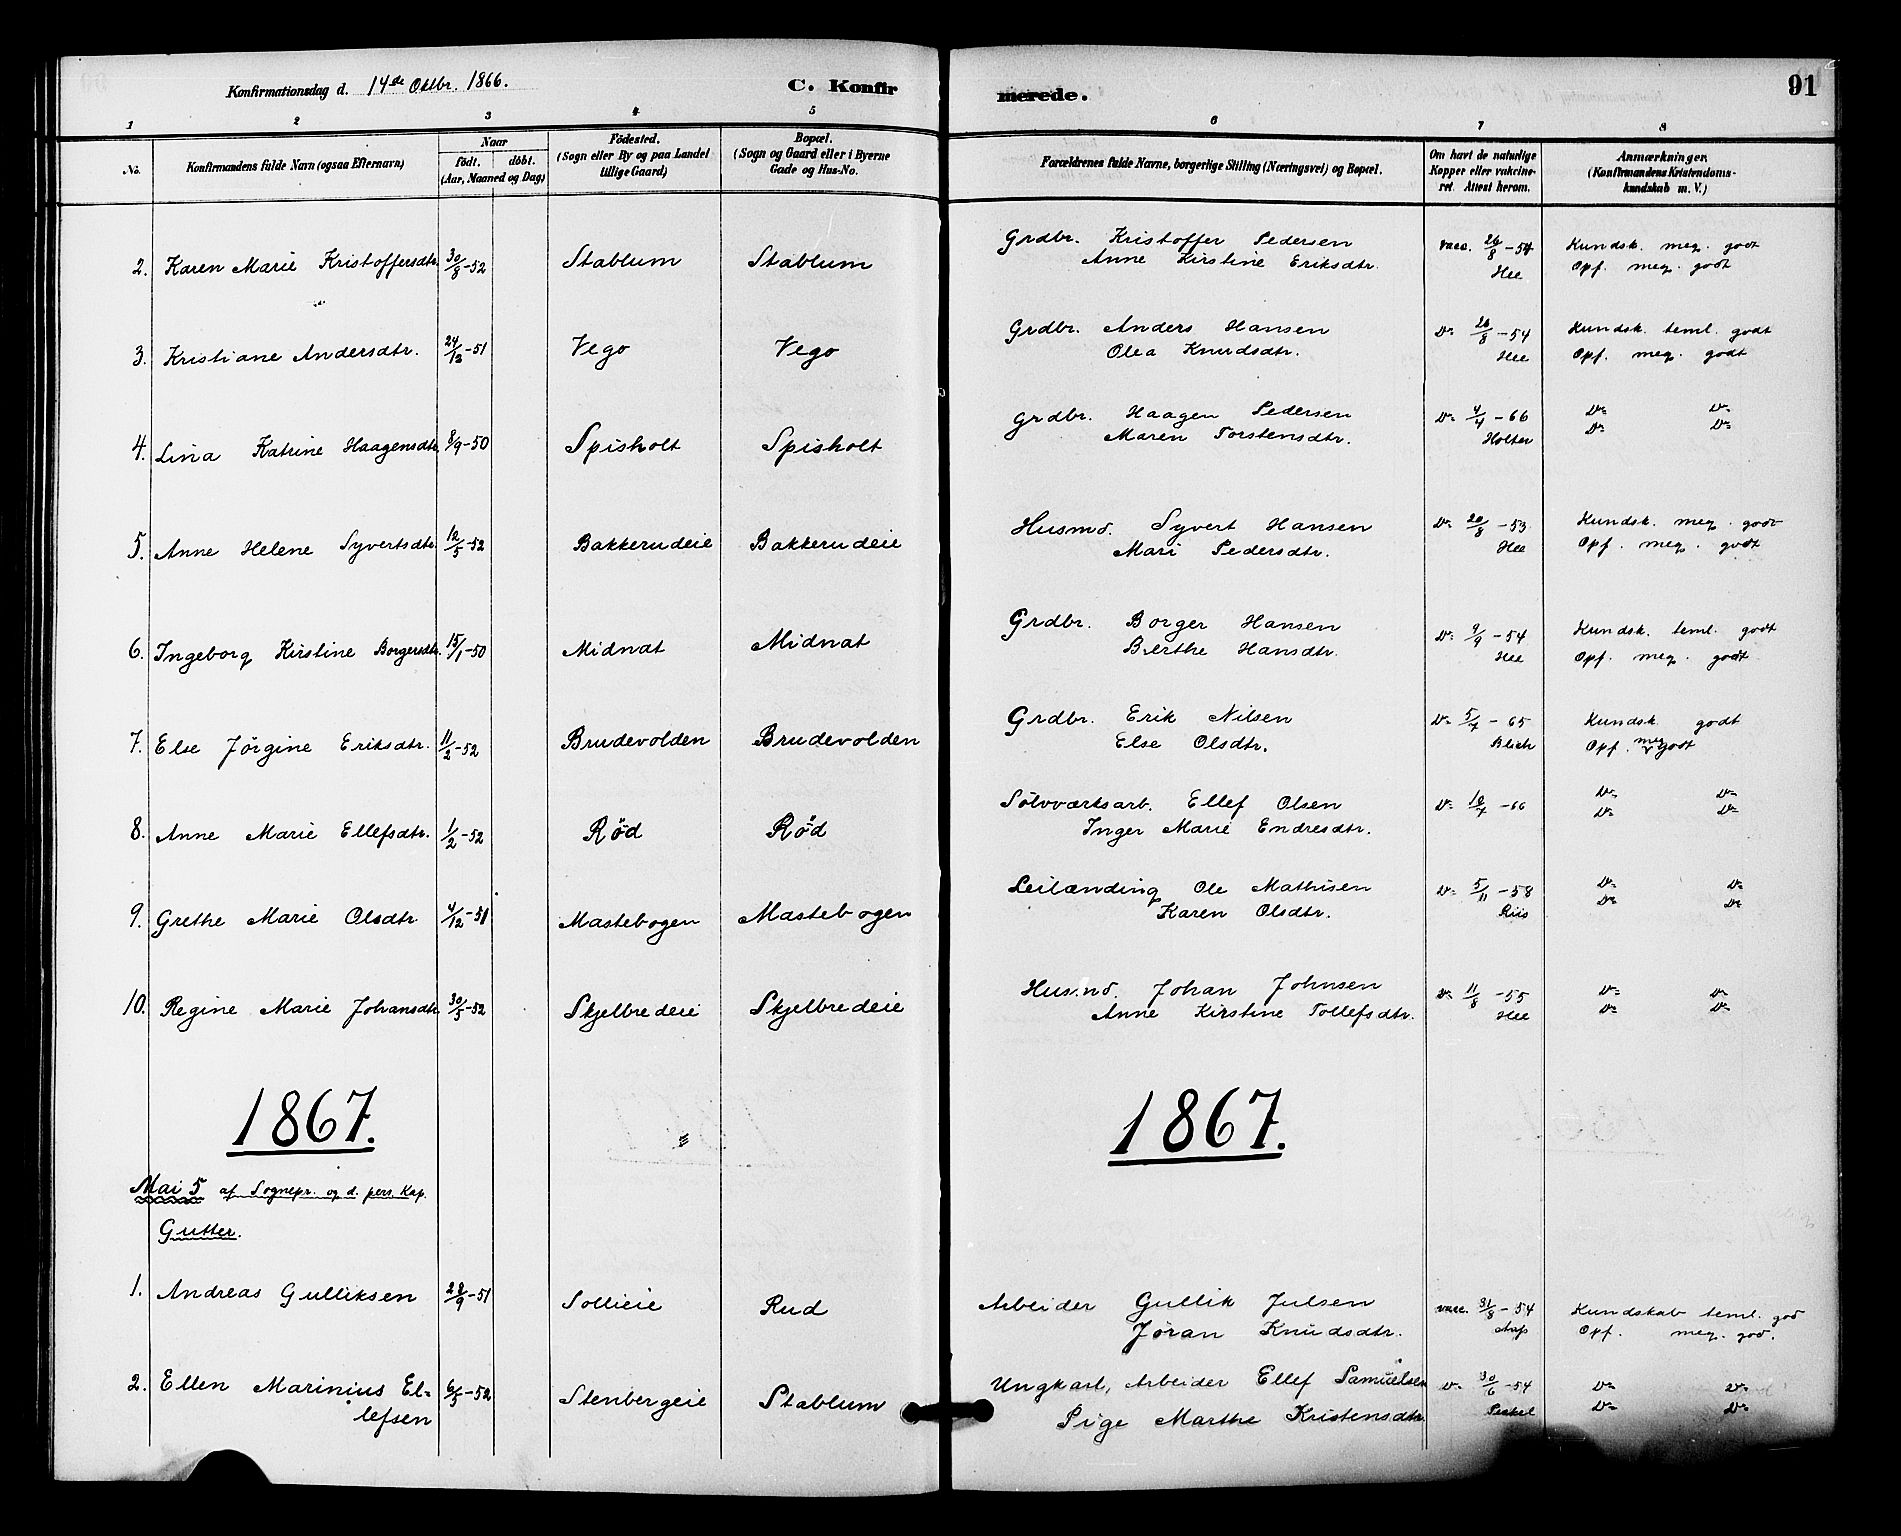 Konfirmationsdag d. 14de Oktbr. 1866. C. Konfirmerede. 91
1 2 3 4 5 6 7 8
No. Konfirmandens fulde Navn (ogsaa Efternavn) Naar födt. döbt. (Aar, Maaned og Dag) Födested. (Sogn eller By og paa Landet tillige Gaard) Bopæl. (Sogn og Gaard eller i Byerne Gade og Hus-No. Forældrenes fulde Navne, borgerlige Stilling (Næringsvei) og Bopæl. Om havt de naturlige Kopper eller vakcineret. Attest herom. Anmærkninger. (Konfirmandens Kristendomskundskab m. V.)
2. Karen Marie Kristoffersdtr. 30/8-52 Stablum Stablum Grdbr. Kristoffer Pedersen vacc. 26/8-54 Kundsk. meg. godt
Anne Kirstine Eriksdtr. Hee Opf. meg. godt
3. Kristiane Andersdtr. 24/12-51 Vego Vego Grdbr. Anders Hansen do 26/8-54 Kundsk. teml. godt
Olea Knudsdtr. Hee Opf. meg. godt
4. Lina Katrine Haagensdtr. 8/9-50 Spisholt Spisholt Grdbr. Haagen Pedersen do 4/4-66 do do
Maren Torstensdtr. Holter do do
5. Anne Helene Syvertsdtr. 12/5-52 Bakkerudeie Bakkerudeie Husmd. Syvert Hansen do 20/8-53 Kundsk. meg. godt
Mari Pedersdtr. Hee Opf. meg. godt
6. Ingeborg Kirstine Borgersdtr. 15/1-50 Midnat Midnat Grdbr. Borger Hansen do 9/9-54 Kundsk. teml. godt
Berthe Hansdtr. Hee Opf. meg. godt
7. Else Jørgine Eriksdtr. 11/2-52 Brudevolden Brudevolden Grdbr. Erik Nilsen do 5/7-65 Kundsk. godt
Else Olsdtr. Blich Opf. meg godt
8. Anne Marie Ellefsdtr. 1/2-52 Rød Rød Sølvværksarb. Ellef Olsen do 10/7-66 do do
Inger Marie Endresdtr. do do
9. Grethe Marie Olsdtr 4/12-51 Mastebogen Mastebogen Leilænding Ole Mathisen do 5/11-58 do do
Karen Olsdtr. Riis do do
10. Regine Marie Johansdtr. 30/5-52 Skjelbredeie Skjelbredeie Husmd. Johan Johnsen do 11/8-55 do do
Anne Kirstine Tollefsdtr. Hee do do
1867. 1867.
Mai 5 af Sognepr. og d. pers. Kap.
Gutter.
1. Andreas Gulliksen 28/9-51 Sollieie Rud Arbeider Gullik Julsen vacc. 31/8-54 Kundskab teml. god
Jøran Knudsdtr. Opf. meg. god.
2. Ellen Marinius El= 6/5-52 Stenbergeie Stablum Ungkarl, Arbeider Ellef Samuelsen do 30/6-54 do do
lefsen Pige Marthe Kristensdtr. do do